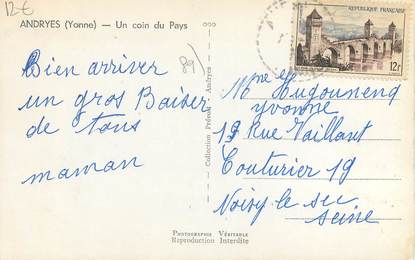 12-€
ANDRYES (Yonne) — Un coin du Pays
89/
Bien arriver
un gros Baiser
de tous
maman
Collection Andryes
RÉPUBLIQUE FRANÇAISE
12F
Mme Hugouneng
yvonne
19 Rue Vaillant
Couturier 19
Noisy-le sec
Seine
PHOTOGRAPHIE VÉRITABLE
Reproduction Interdite